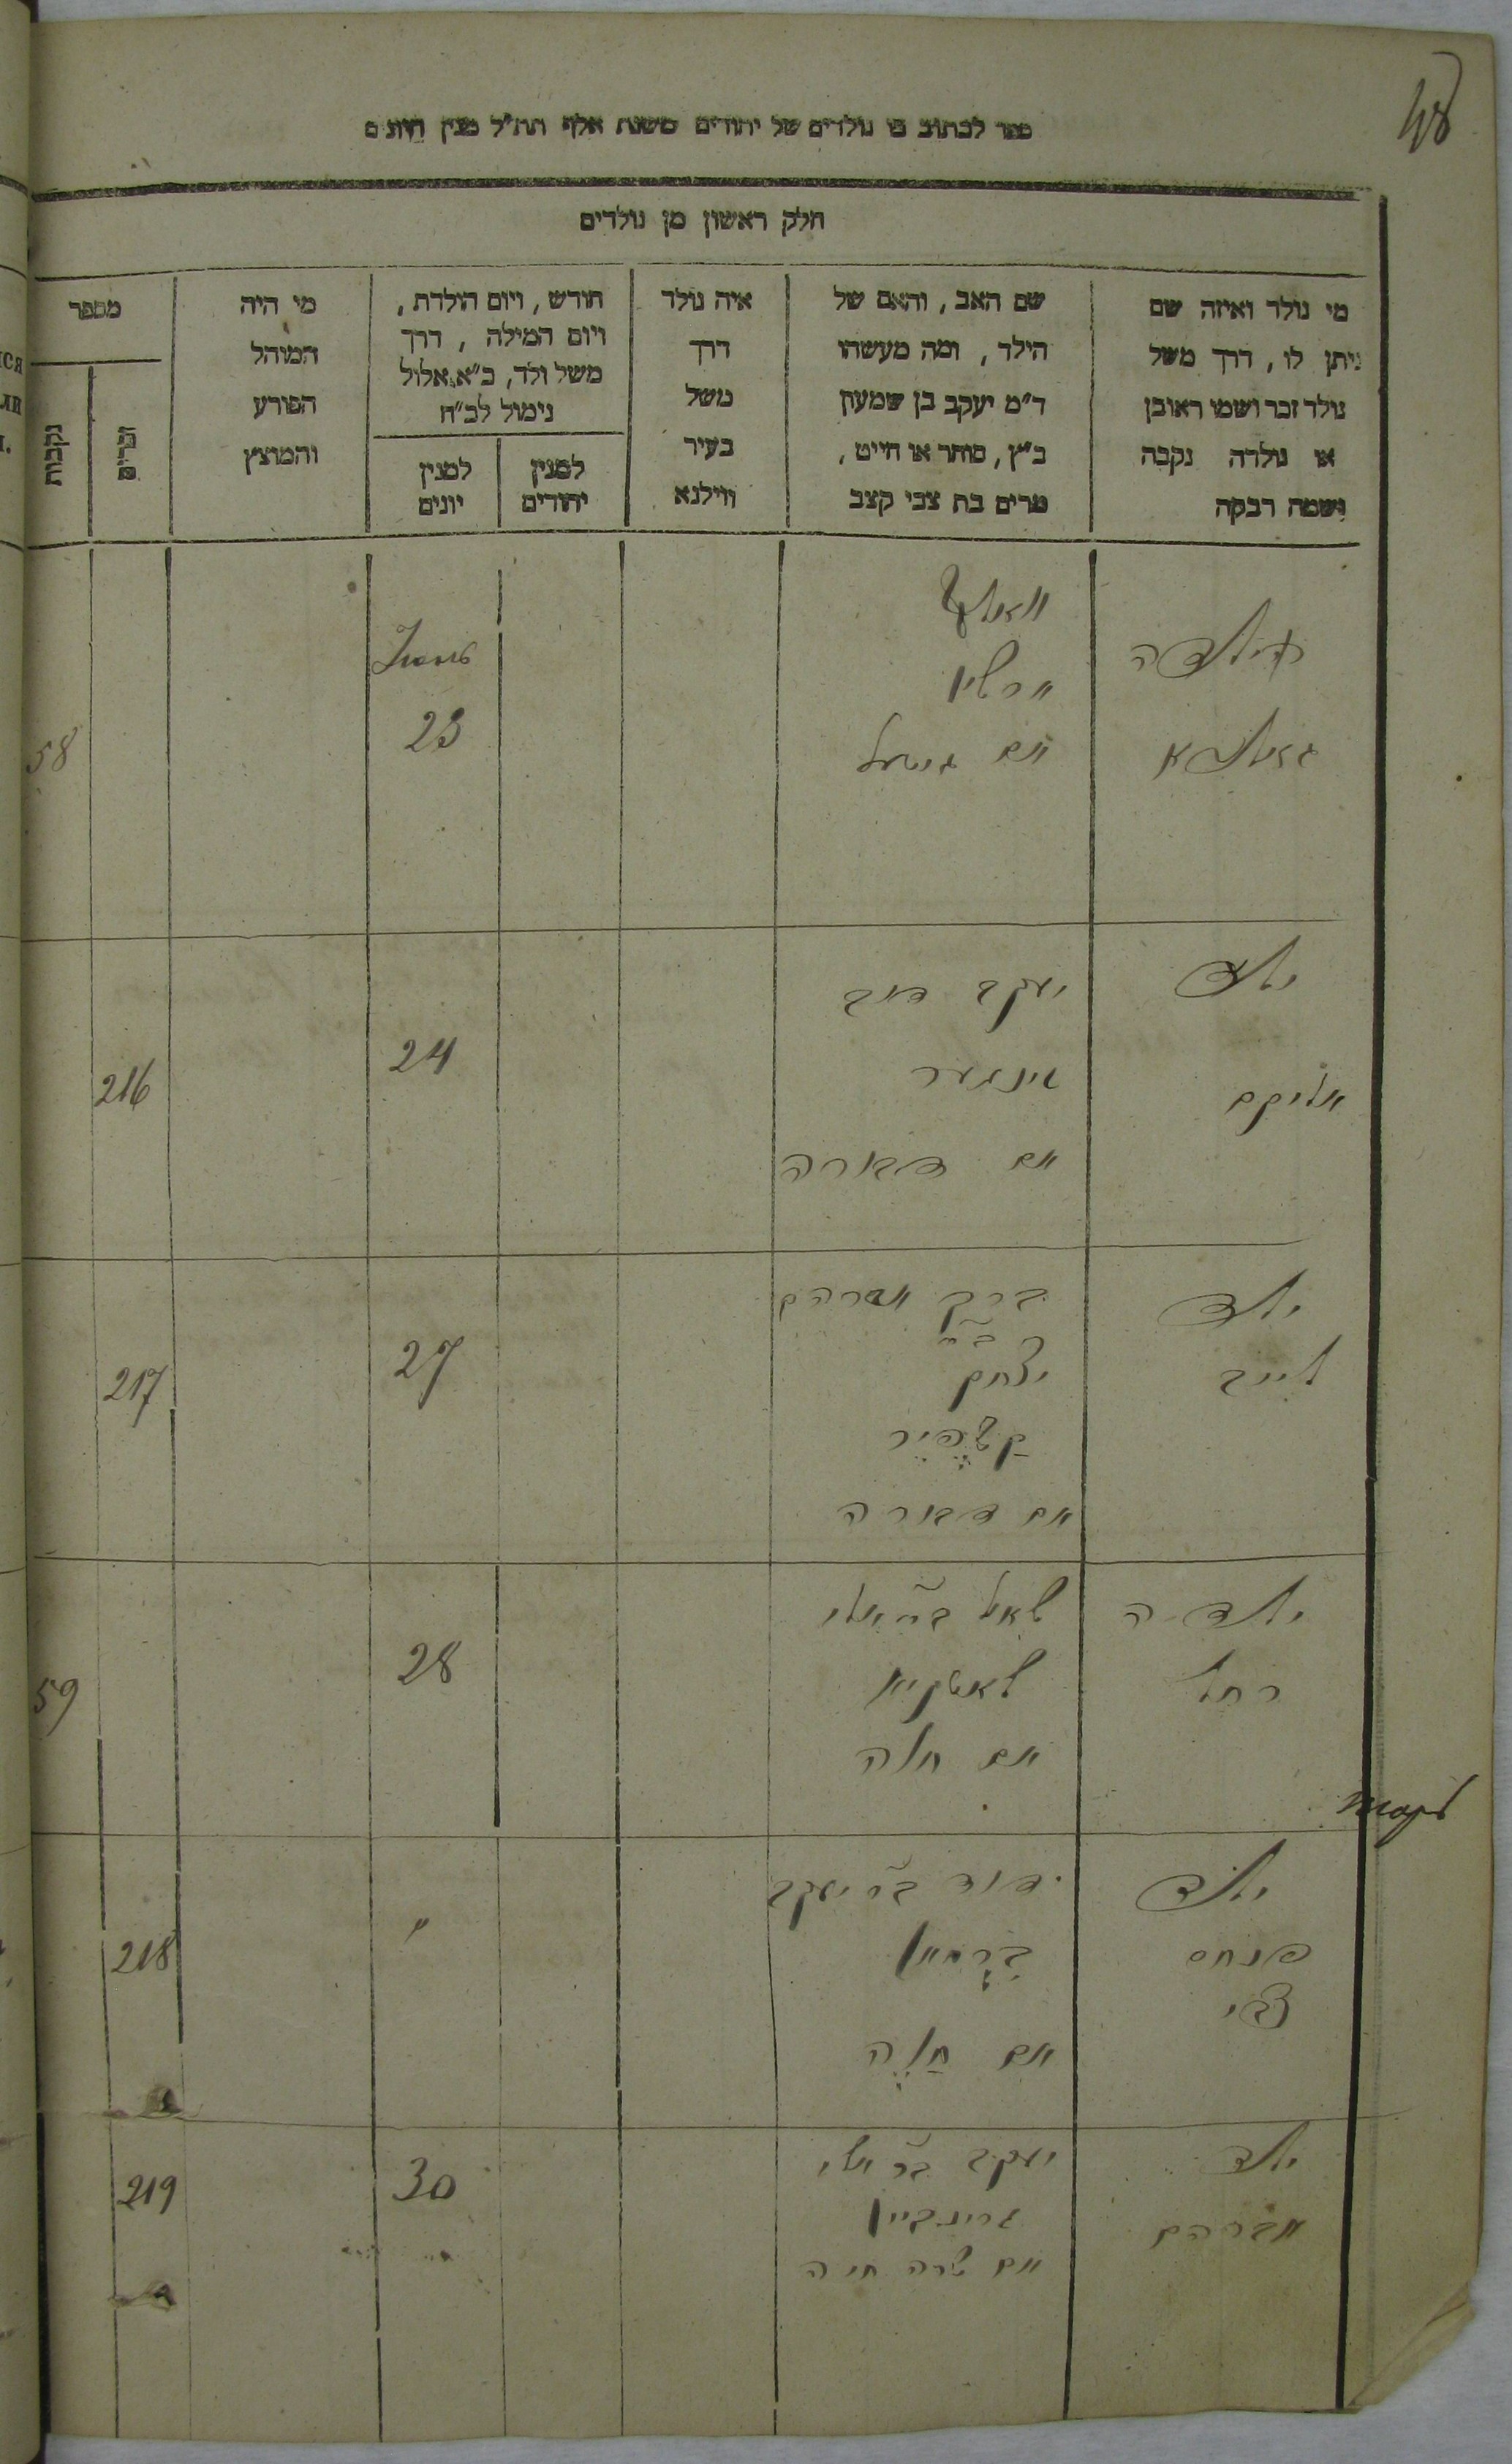 48
ספר לכתוב בו נולדים של יהודים משנת אלף תת"ל מנין היונים
חלק ראשון מן נולדים
מי נולד ואיזה שם
ניתן לו, דרך משל
נולד זכר ושמו ראובן
או נולדה נקבה
ושמה רבקה
שם האב, והאם של
הילד, ומה מעשהו
ד"מ יעקב בן שמעון
כ"ץ, סוחר או חייט,
מרים בת צבי קצב
איה נולד
דרך
משל
בעיר
ווילנא
חודש, ויום הולדת,
ויום המילה, דרך
משל ולד, כ"א אלול
נימול לכ"ח
למנין
יהודים
למנין
יונים
מי היה
המוהל
הפורע
והמוצץ
מספר
זכרים
נקבות
ילדה
וואלף
אם גיטעל
23
58
ילד
אליקם
יעקב דוב
אם דבורה
24
216
ילד
לייב
ברך אברהם
ב"ר
יצחק
אם דבורה
27
217
ילדה
רחל
שאול ב"ר אלי
אם חלה
28
59
ילד
פנחס
צבי
דוד ב"ר יעקב
בערמאן
אם חי'ה
"
218
ילד
אברהם
יעקב ב"ר אלי
גרינבוים
אם שרה חיה
30
219